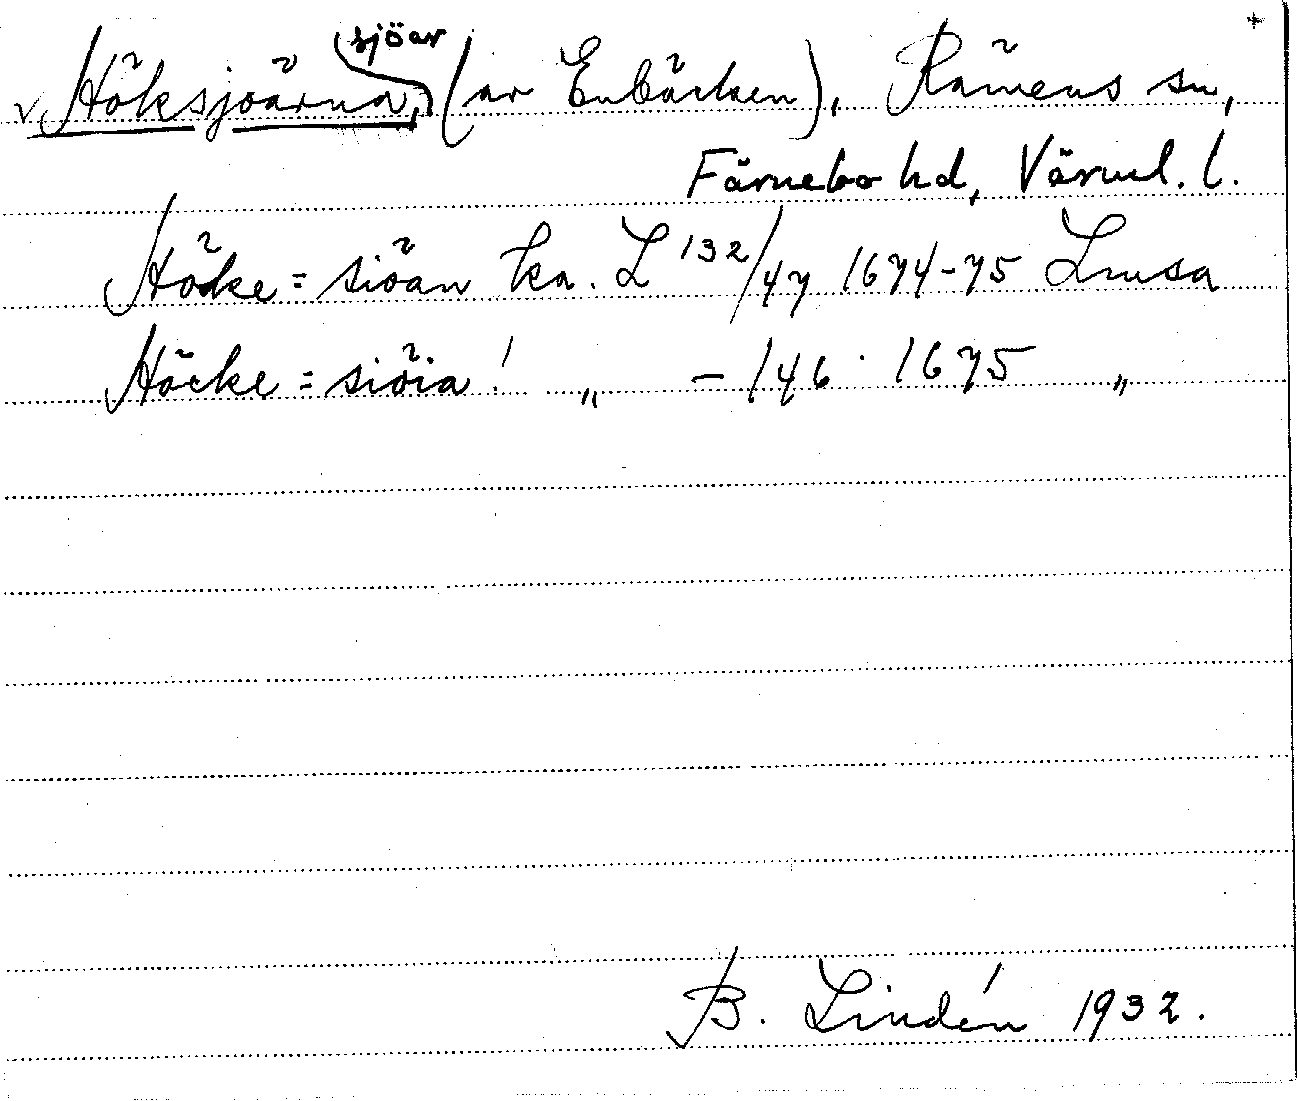 sjöar
v Höksjöarna, (av Enbäcken), Rämens sn,
Färnebo hd, Värml. l.
Höke=siöan ka. L 132/47 1674-75 Lnvsa
Höcke=siöia! „ - 146 · 1675 „
B. Lindén 1932.